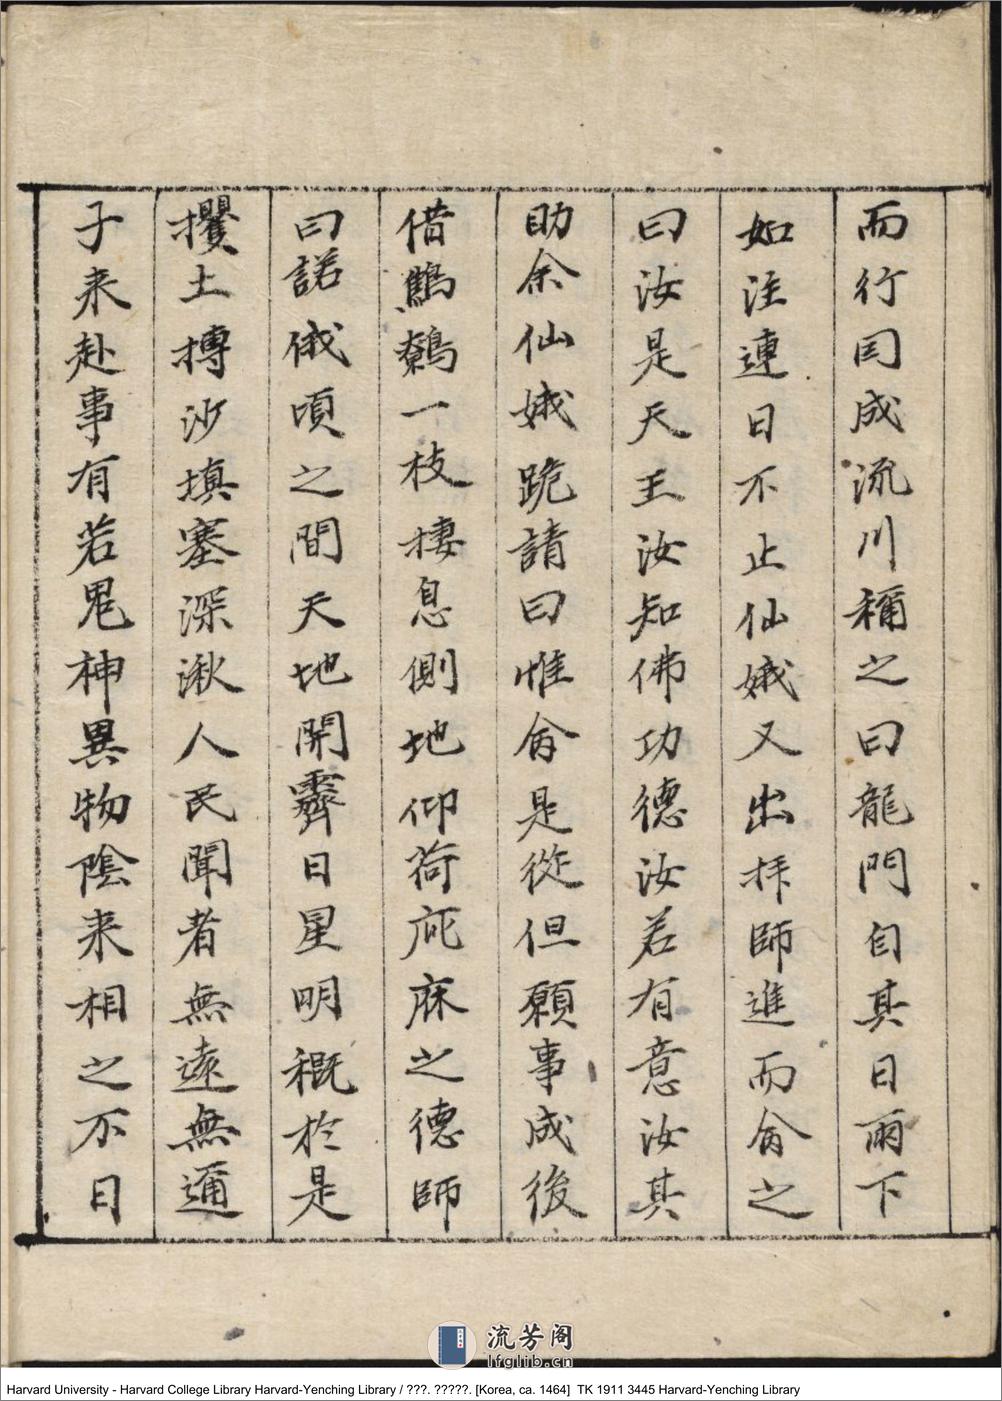 而行因成流川稱之曰龍門自其日雨下
如注連日不止仙娥又出拜師進而命之
曰汝是天王汝知佛功德汝若有意汝其
助余仙娥跪請曰惟命是從但願事成後
借鷦鷯一枝棲息側地仰荷庇庥之德師
曰諾俄頃之間天地開霽日星明穊於是
攫土摶沙填塞深湫人民聞者無遠無邇
子来赴事有若鬼神異物陰来相之不日
流芳阁
lfglib.cn
Harvard University - Harvard College Library Harvard-Yenching Library / ???. ?????. [Korea, ca. 1464] TK 1911 3445 Harvard-Yenching Library